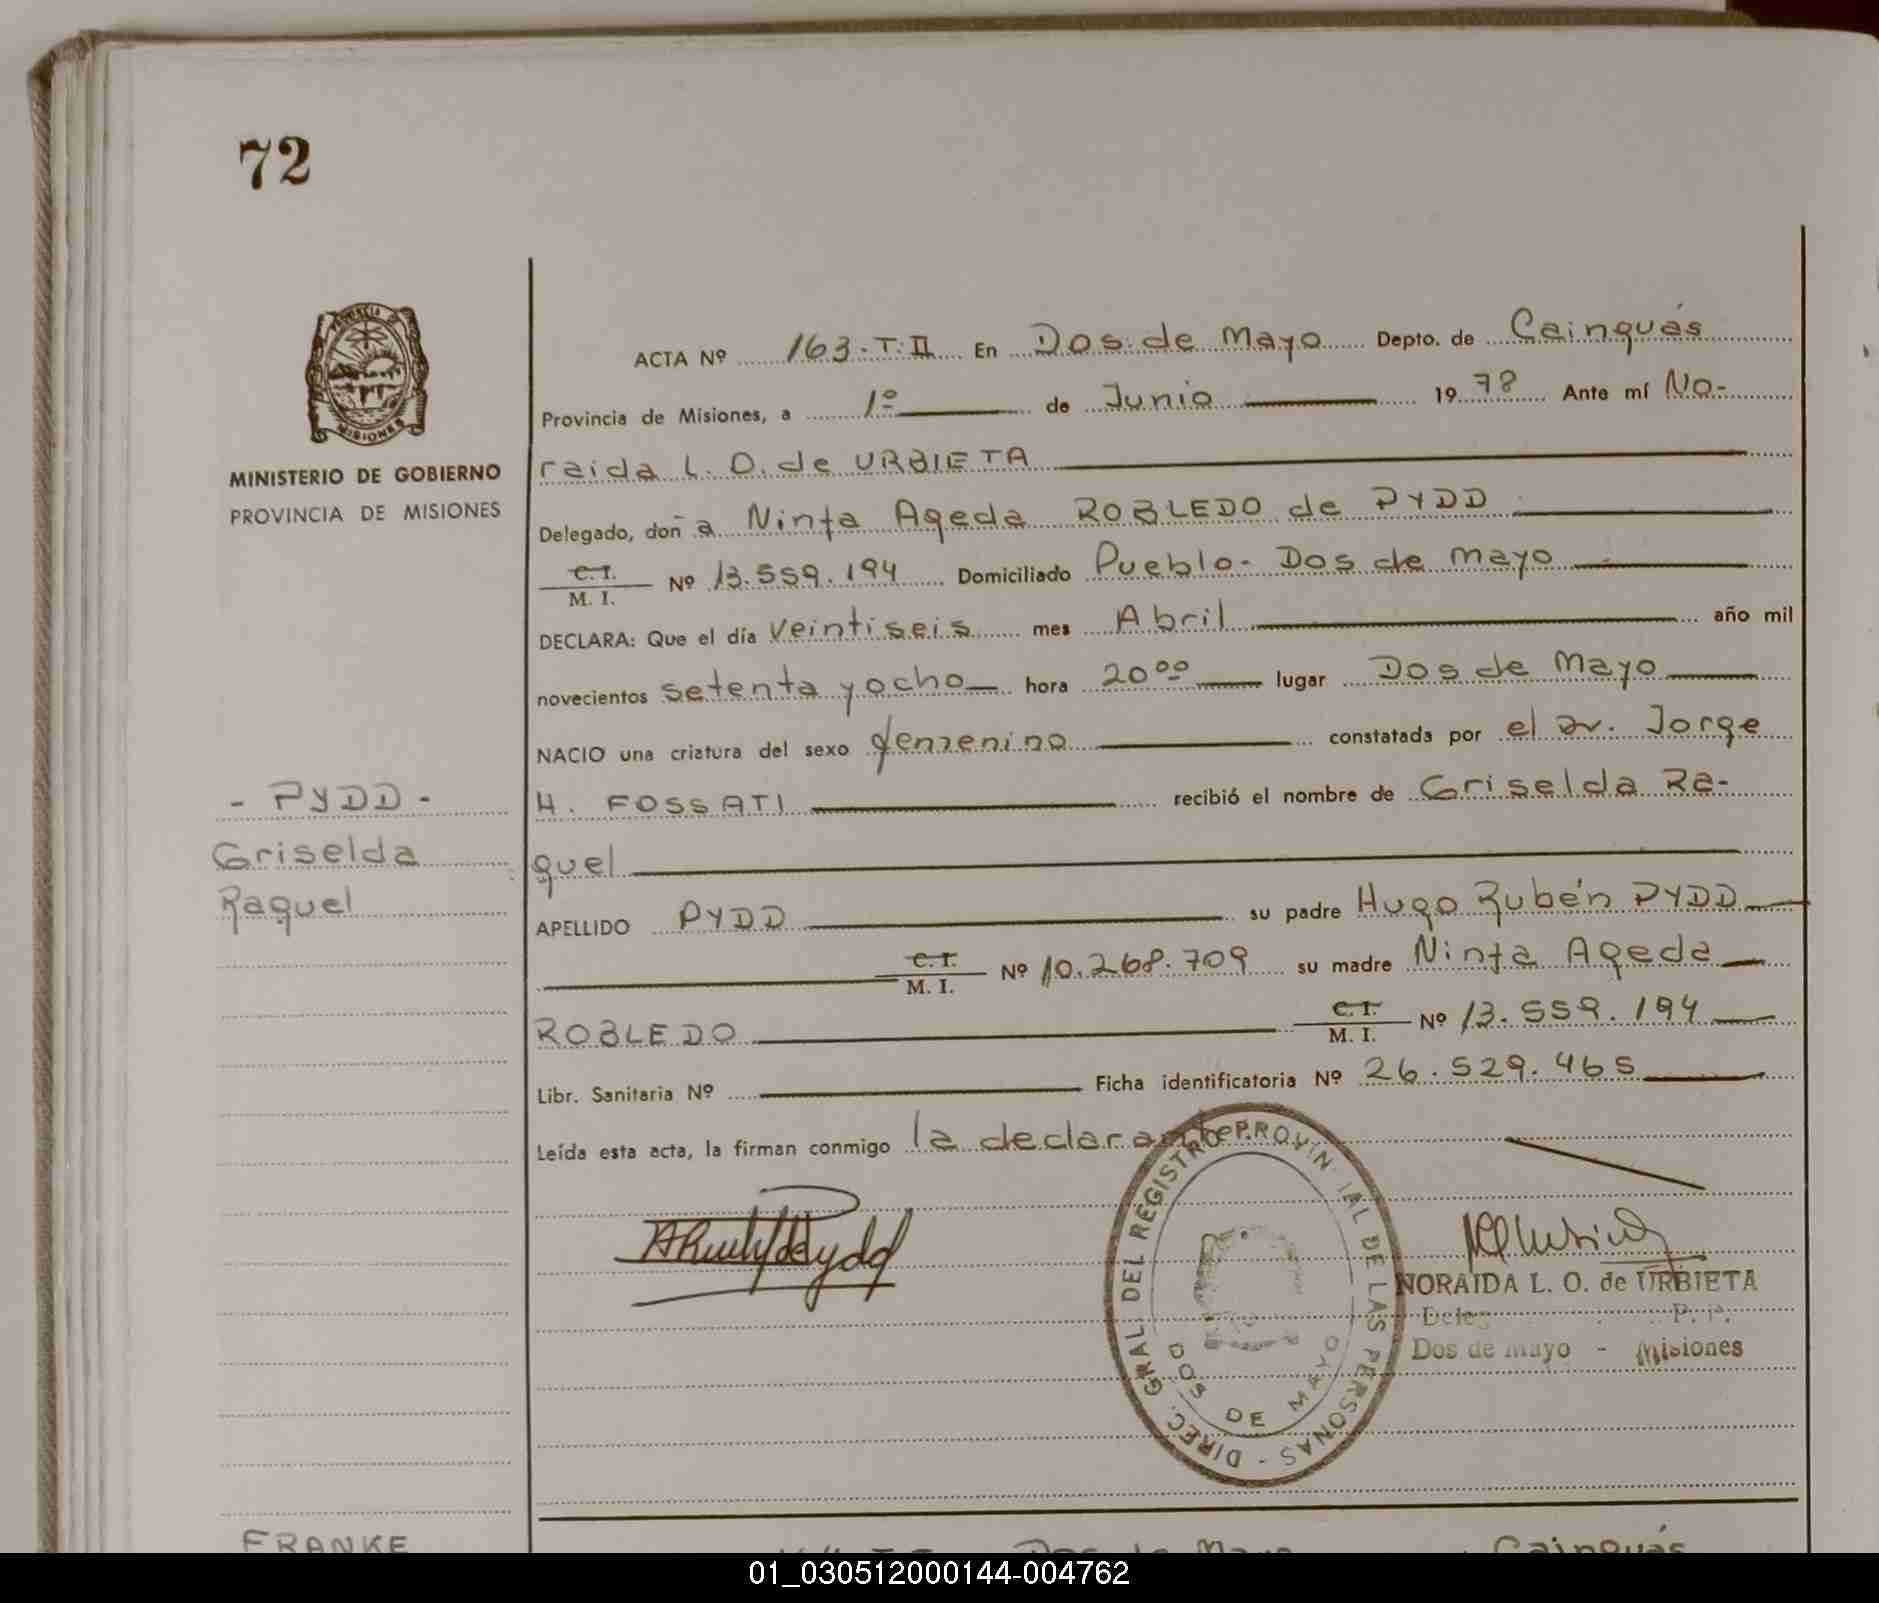 72
PROVINCIA DE
MISIONES
MINISTERIO DE GOBIERNO
PROVINCIA DE MISIONES
ACTA Nº 163-T:II En Dos de Mayo Depto. de Cainguás
Provincia de Misiones, a 1º de Junio 1978 Ante mí No-
raida L. O. de URBIETA
Delegado, doña Ninfa Ageda ROBLEDO de PYDD
C.I. M. I. Nº 13.559.194 Domiciliado Pueblo- Dos de Mayo
DECLARA: Que el día veintiseis mes Abril año mil
novecientos setenta y ocho hora 20oo lugar Dos de Mayo
NACIO una criatura del sexo femenino constatada por el Dr. Jorge
H. FOSSATI recibió el nombre de Griselda Ra-
quel
- PYDD -
Griselda
Raquel
APELLIDO PYDD su padre Hugo Rubén PYDD
C.I. M. I. Nº 10.268.709 su madre Ninfa Ageda
ROBLEDO C.I. M. I. Nº 13.559.194
Libr. Sanitaria Nº Ficha identificatoria Nº 26.529.465
Leída esta acta, la firman conmigo la declarante
DIREC. GRAL. DEL REGISTRO PROVINCIAL DE LAS PERSONAS -
DOS DE MAYO
NORAIDA L. O. de URBIETA
Dos de Mayo - Misiones
FRANKE
Dos de Mayo Cainguás
01_030512000144-004762